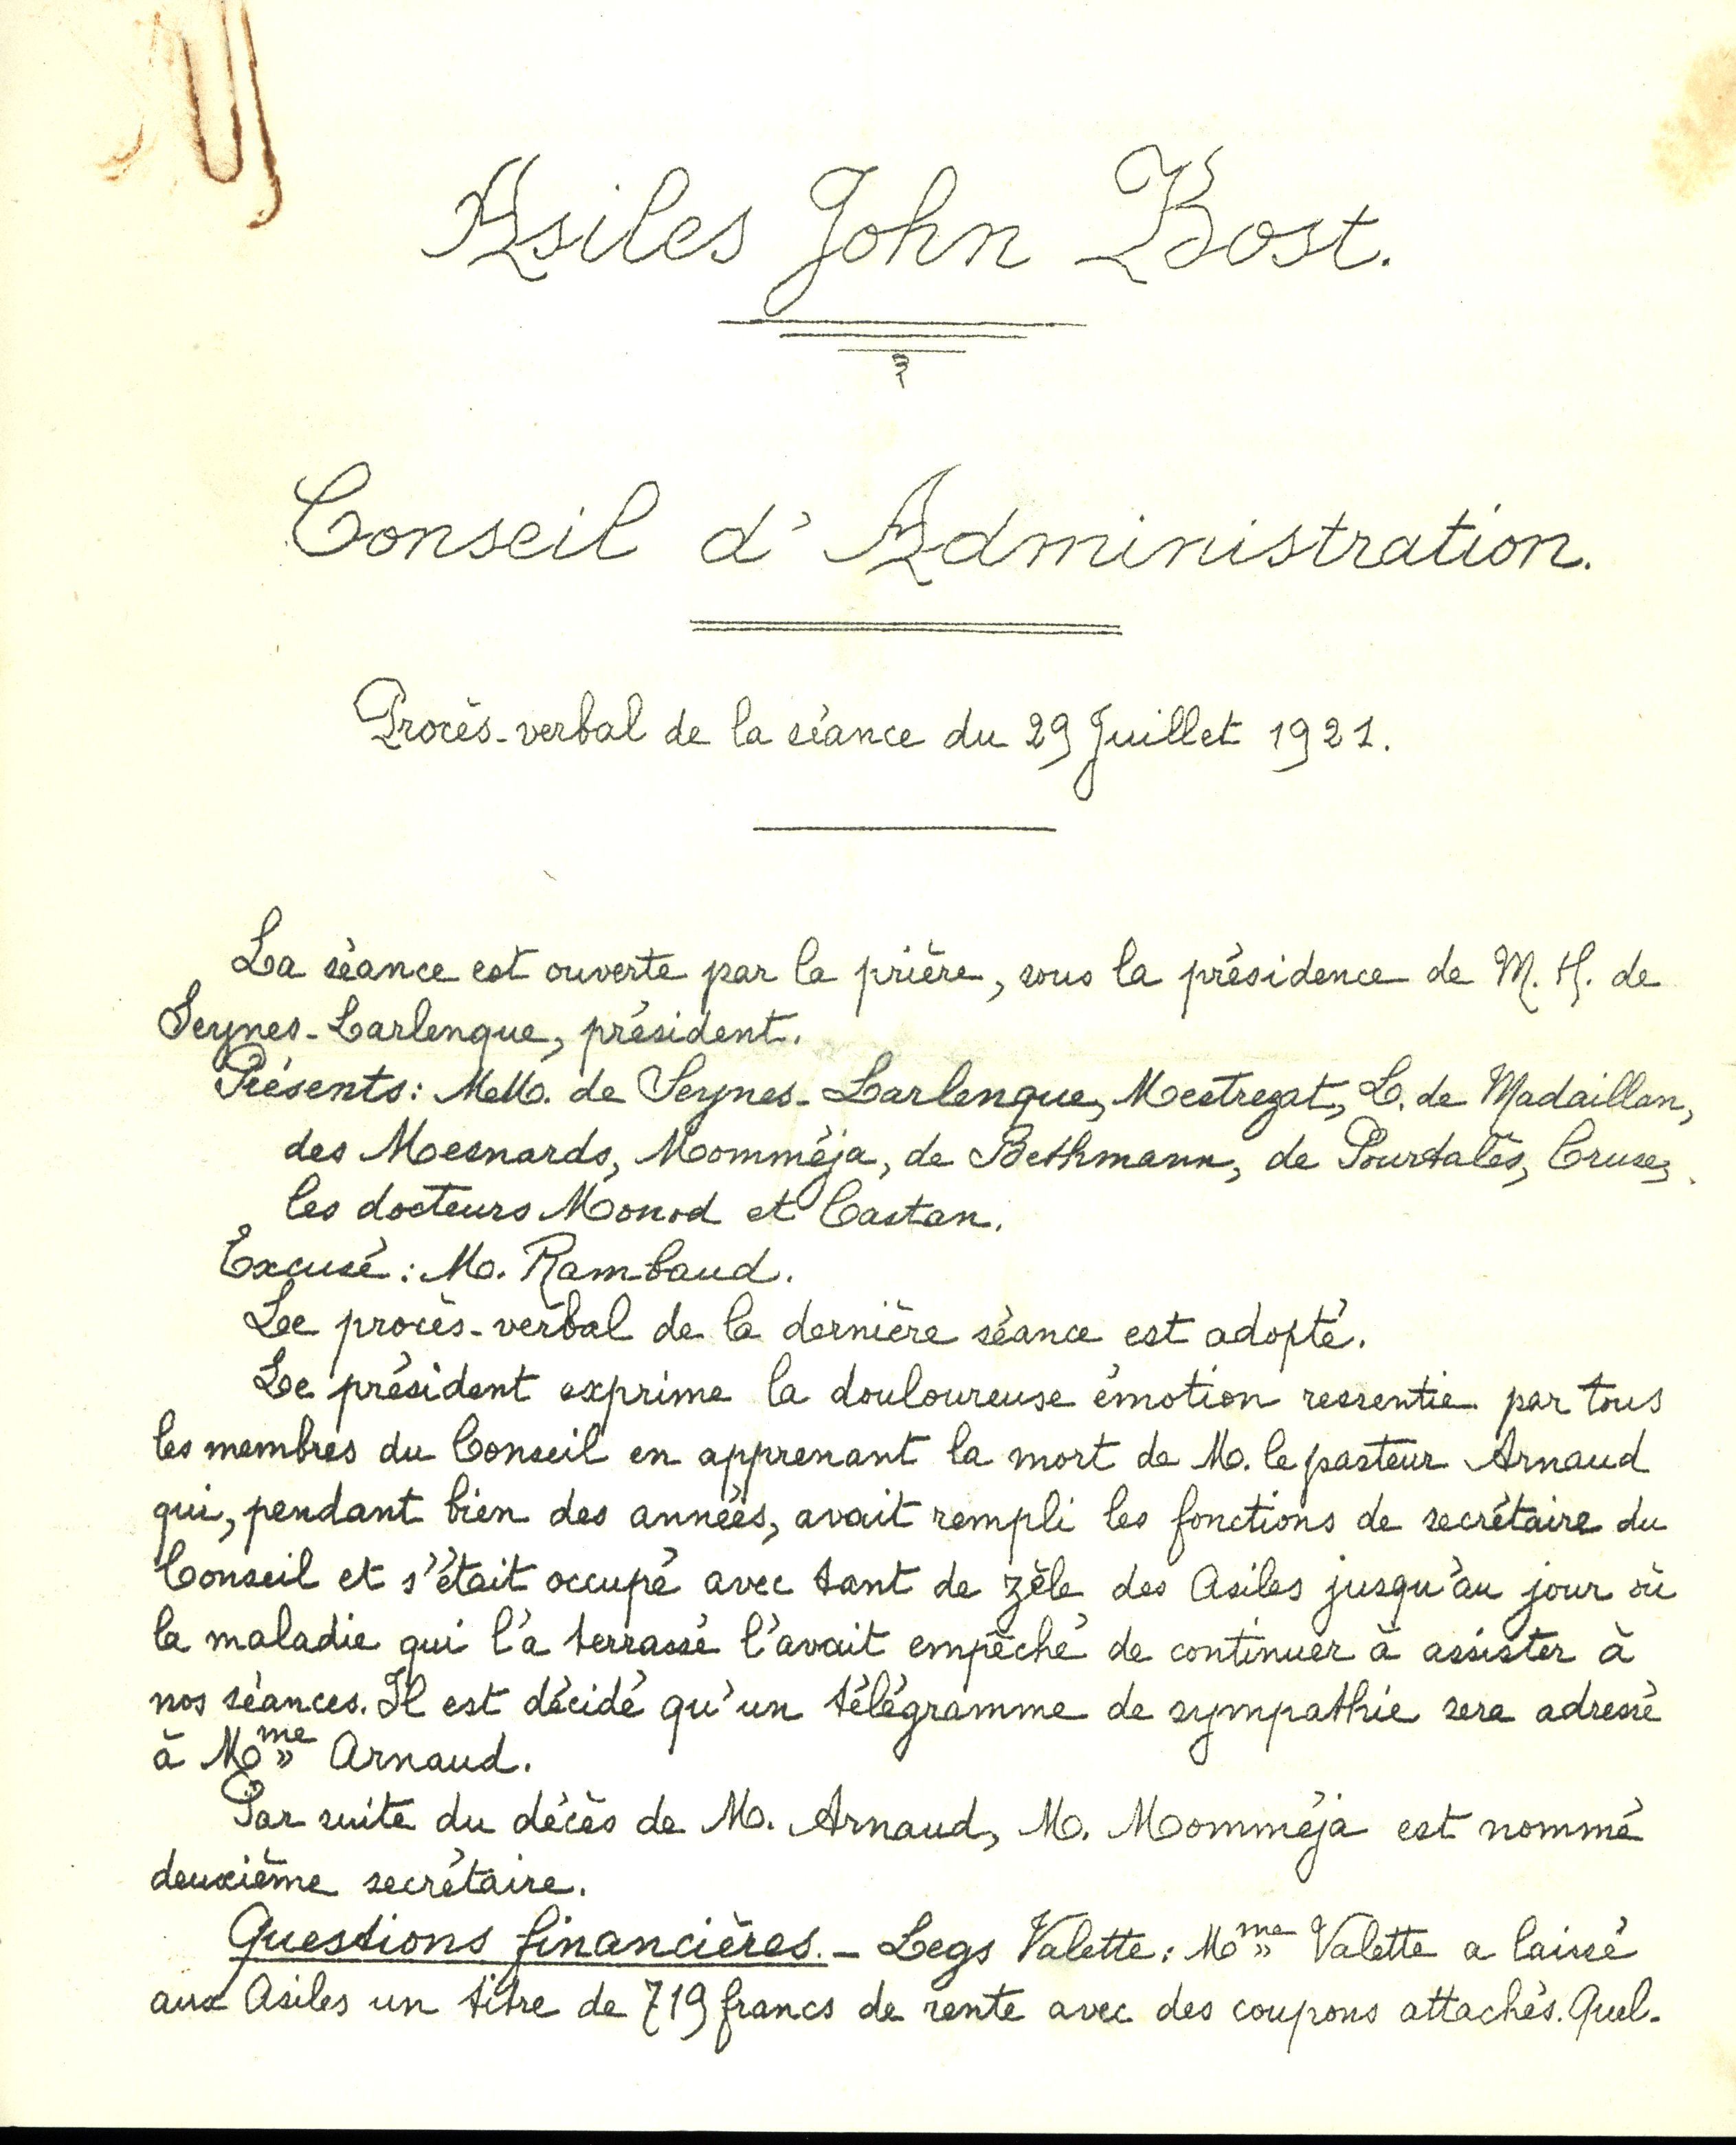 Asiles John Bost.
Conseil d'Administration.
Procès-verbal de la séance du 29 Juillet 1921.
La séance est ouverte par la prière, sous la présidence de M. H. de
Seynes-Larlenque, président.
Présents: MM. de Seynes-Larlenque, Mestrezat, L. de Madaillan,
des Mesnards, Momméja, de Bethmann, de Pourtalès, Cruse,
les docteurs Monod et Castan.
Excusé: M. Rambaud.
Le procès-verbal de la dernière séance est adopté.
Le président exprime la douloureuse émotion ressentie par tous
les membres du Conseil en apprenant la mort de M. le pasteur Arnaud
qui, pendant bien des années, avait rempli les fonctions de secrétaire du
Conseil et s'était occupé avec tant de zèle des Asiles jusqu'au jour où
la maladie qui l'a terrassé l'avait empêché de continuer à assister à
nos séances. Il est décidé qu'un télégramme de sympathie sera adressé
à Mme Arnaud.
Par suite du décès de M. Arnaud, M. Momméja est nommé
deuxième secrétaire.
Questions financières. - Legs Valette: Mme Valette a laissé
aux Asiles un titre de 719 francs de rente avec des coupons attachés. Quel-